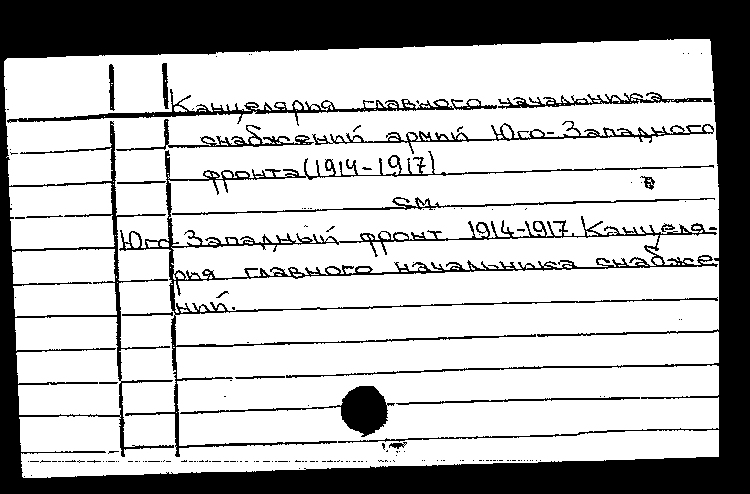 Канцелярия главного начальника
снабжений армий Юго-Западного
фронта (1914-1917).
см.
Юго-Западный фронт. 1914-1917. Канцеля-
рия главного начальника снабже-
ний.